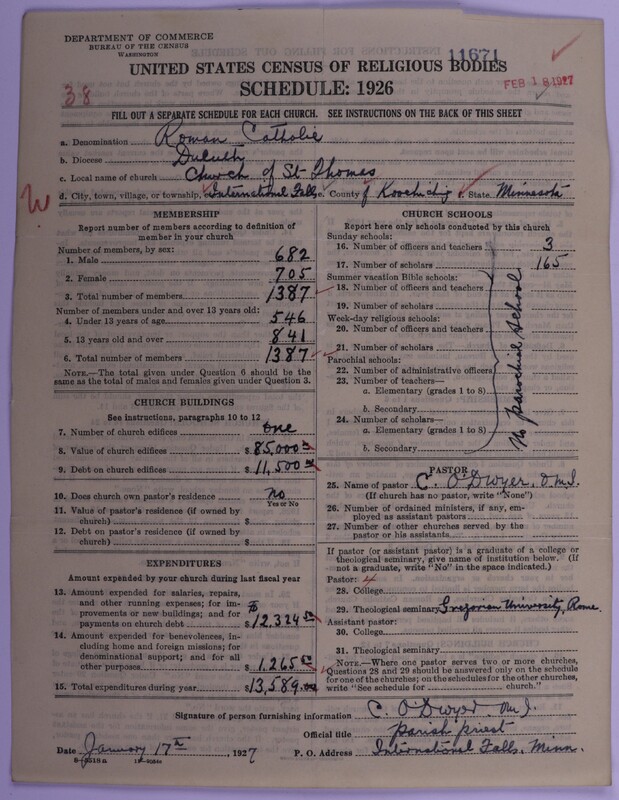 DEPARTMENT OF COMMERCE
BUREAU OF THE CENSUS
WASHINGTON
11671
FEB 18 1927
UNITED STATES CENSUS OF RELIGIOUS BODIES
38
SCHEDULE: 1926
FILL OUT A SEPARATE SCHEDULE FOR EACH CHURCH. SEE INSTRUCTIONS ON THE BACK OF THIS SHEET
a. Denomination Roman Catholic
b. Diocese Duluth
c. Local name of church Church of St Thomas
d. City, town, village, or township, International Falls e. County of Koochiching f. State Minnesota
MEMBERSHIP
Report number of members according to definition of
member in your church
Number of members, by sex:
1. Male 682
2. Female 705
3. Total number of members 1387
Number of members under and over 13 years old:
4. Under 13 years of age 546
5. 13 years old and over 841
6. Total number of members 1387
NOTE.—The total given under Question 6 should be
same as the total of males and females given under Question 3.
CHURCH BUILDINGS
See instructions, paragraphs 10 to 12
7. Number of church edifices one
8. Value of church edifices $ 85,000
9. Debt on church edifices $ 11,500
10. Does church own pastor's residence no
Yes or No
11. Value of pastor's residence (if owned by
church) $
12. Debt on pastor's residence (if owned by
church) $
EXPENDITURES
Amount expended by your church during last fiscal year
13. Amount expended for salaries, repairs,
and other running expenses; for im-
provements or new buildings; and for
payments on church debt $ 12,324
14. Amount expended for benevolences, in-
cluding home and foreign missions; for
denominational support; and for all
other purposes $ 1,265
15. Total expenditures during year $ 13,589
CHURCH SCHOOLS
Report here only schools conducted by this church
Sunday schools:
16. Number of officers and teachers 3
17. Number of scholars 165
Summer vacation Bible schools:
18. Number of officers and teachers
19. Number of scholars
Week-day religious schools:
20. Number of officers and teachers
21. Number of scholars
Parochial schools:
22. Number of administrative officers
23. Number of teachers—
a. Elementary (grades 1 to 8)
b. Secondary
24. Number of scholars—
a. Elementary (grades 1 to 8)
b. Secondary
No parochial school
PASTOR
25. Name of pastor C. O'Dwyer, OMI.
(If church has no pastor, write "None")
26. Number of ordained ministers, if any, em-
ployed as assistant pastors
27. Number of other churches served by the
pastor or his assistants
If pastor (or assistant pastor) is a graduate of a college or
theological seminary, give name of institution below. (If
not a graduate, write "No" in the space indicated.)
Pastor: 4
28. College
29. Theological seminary Gregorian University, Rome
Assistant pastor:
30. College
31. Theological seminary
NOTE.—Where one pastor serves two or more churches,
Questions 28 and 29 should be answered only on the schedule
for one of the churches; on the schedules for the other churches,
write "See schedule for church."
Signature of person furnishing information C. O'Dwyer OMI.
Official title parish priest
Date January 17th, 1927 P. O. Address International Falls, Minn.